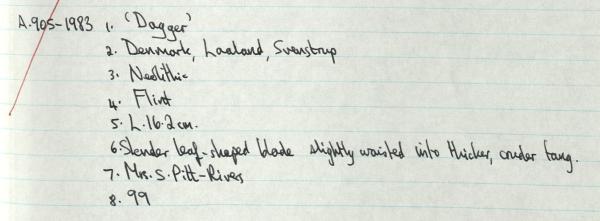 A.905-1983 1. 'Dagger'
2. Denmark, Laaland, Svenstrup
3. Neolithic
4. Flint
5. L.16.2cm.
6. Slender leaf-shaped blade slightly waisted into thicker, cruder tang.
7. Mrs. S. Pitt-Rivers
8. 99